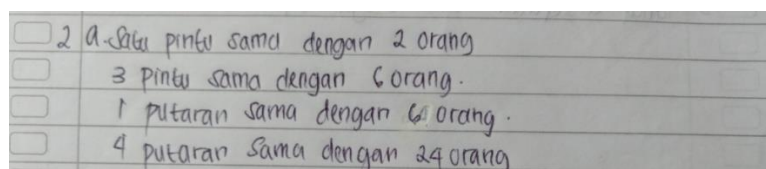 2 a. Satu pintu sama dengan 2 orang
3 pintu sama dengan 6 orang.
1 putaran sama dengan 6 orang.
4 putaran sama dengan 24 orang